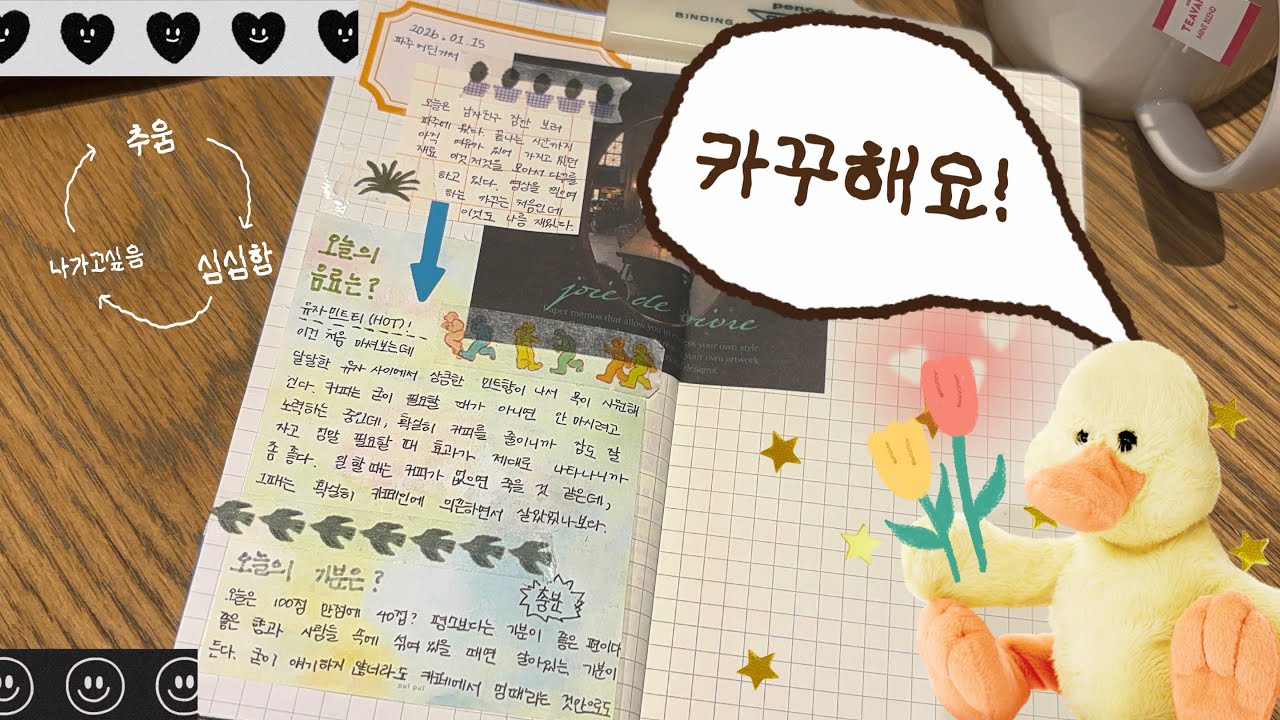 2026.01.15
파주 어딘가서
penco
BINDING
TEAVANA
MINT BLEND
오늘은 남자친구 잠깐 보러
파주에 왔다. 끝나는 시간까지
아직 여유가 있어 가지고 있던
재료 이것저것을 모아서 다꾸를
하고 있다. 영상을 찍으며
하는 카꾸는 처음인데
이것도 나름 재밌다.
카꾸해요!
추움
나가고싶음
심심함
오늘의
음료는?
유자 민트티 (HOT)!
이건 처음 마셔보는데
joie de vivre
paper memos that allow you to
your own style
your own artwork
designs.
달달한 유자 사이에서 상큼한 민트향이 나서 목이 시원해
진다. 커피는 굳이 필요할 때가 아니면 안 마시려고
노력하는 중인데, 확실히 커피를 줄이니까 잠도 잘
자고 정말 필요할 때 효과가 제대로 나타나니까
좀 좋다. 일할 때는 커피가 없으면 죽을 것 같은데,
그때는 확실히 카페인에 의존하면서 살았었나보다.
오늘의 기분은?
충분
오늘은 100점 만점에 40점? 평소보다는 기분이 좋은 편이다
좋은 향과 사람들 속에 섞여 있을 때면 살아있는 기분이
든다. 굳이 얘기하지 않더라도 카페에서 멍때리는 것만으로도
pul pul